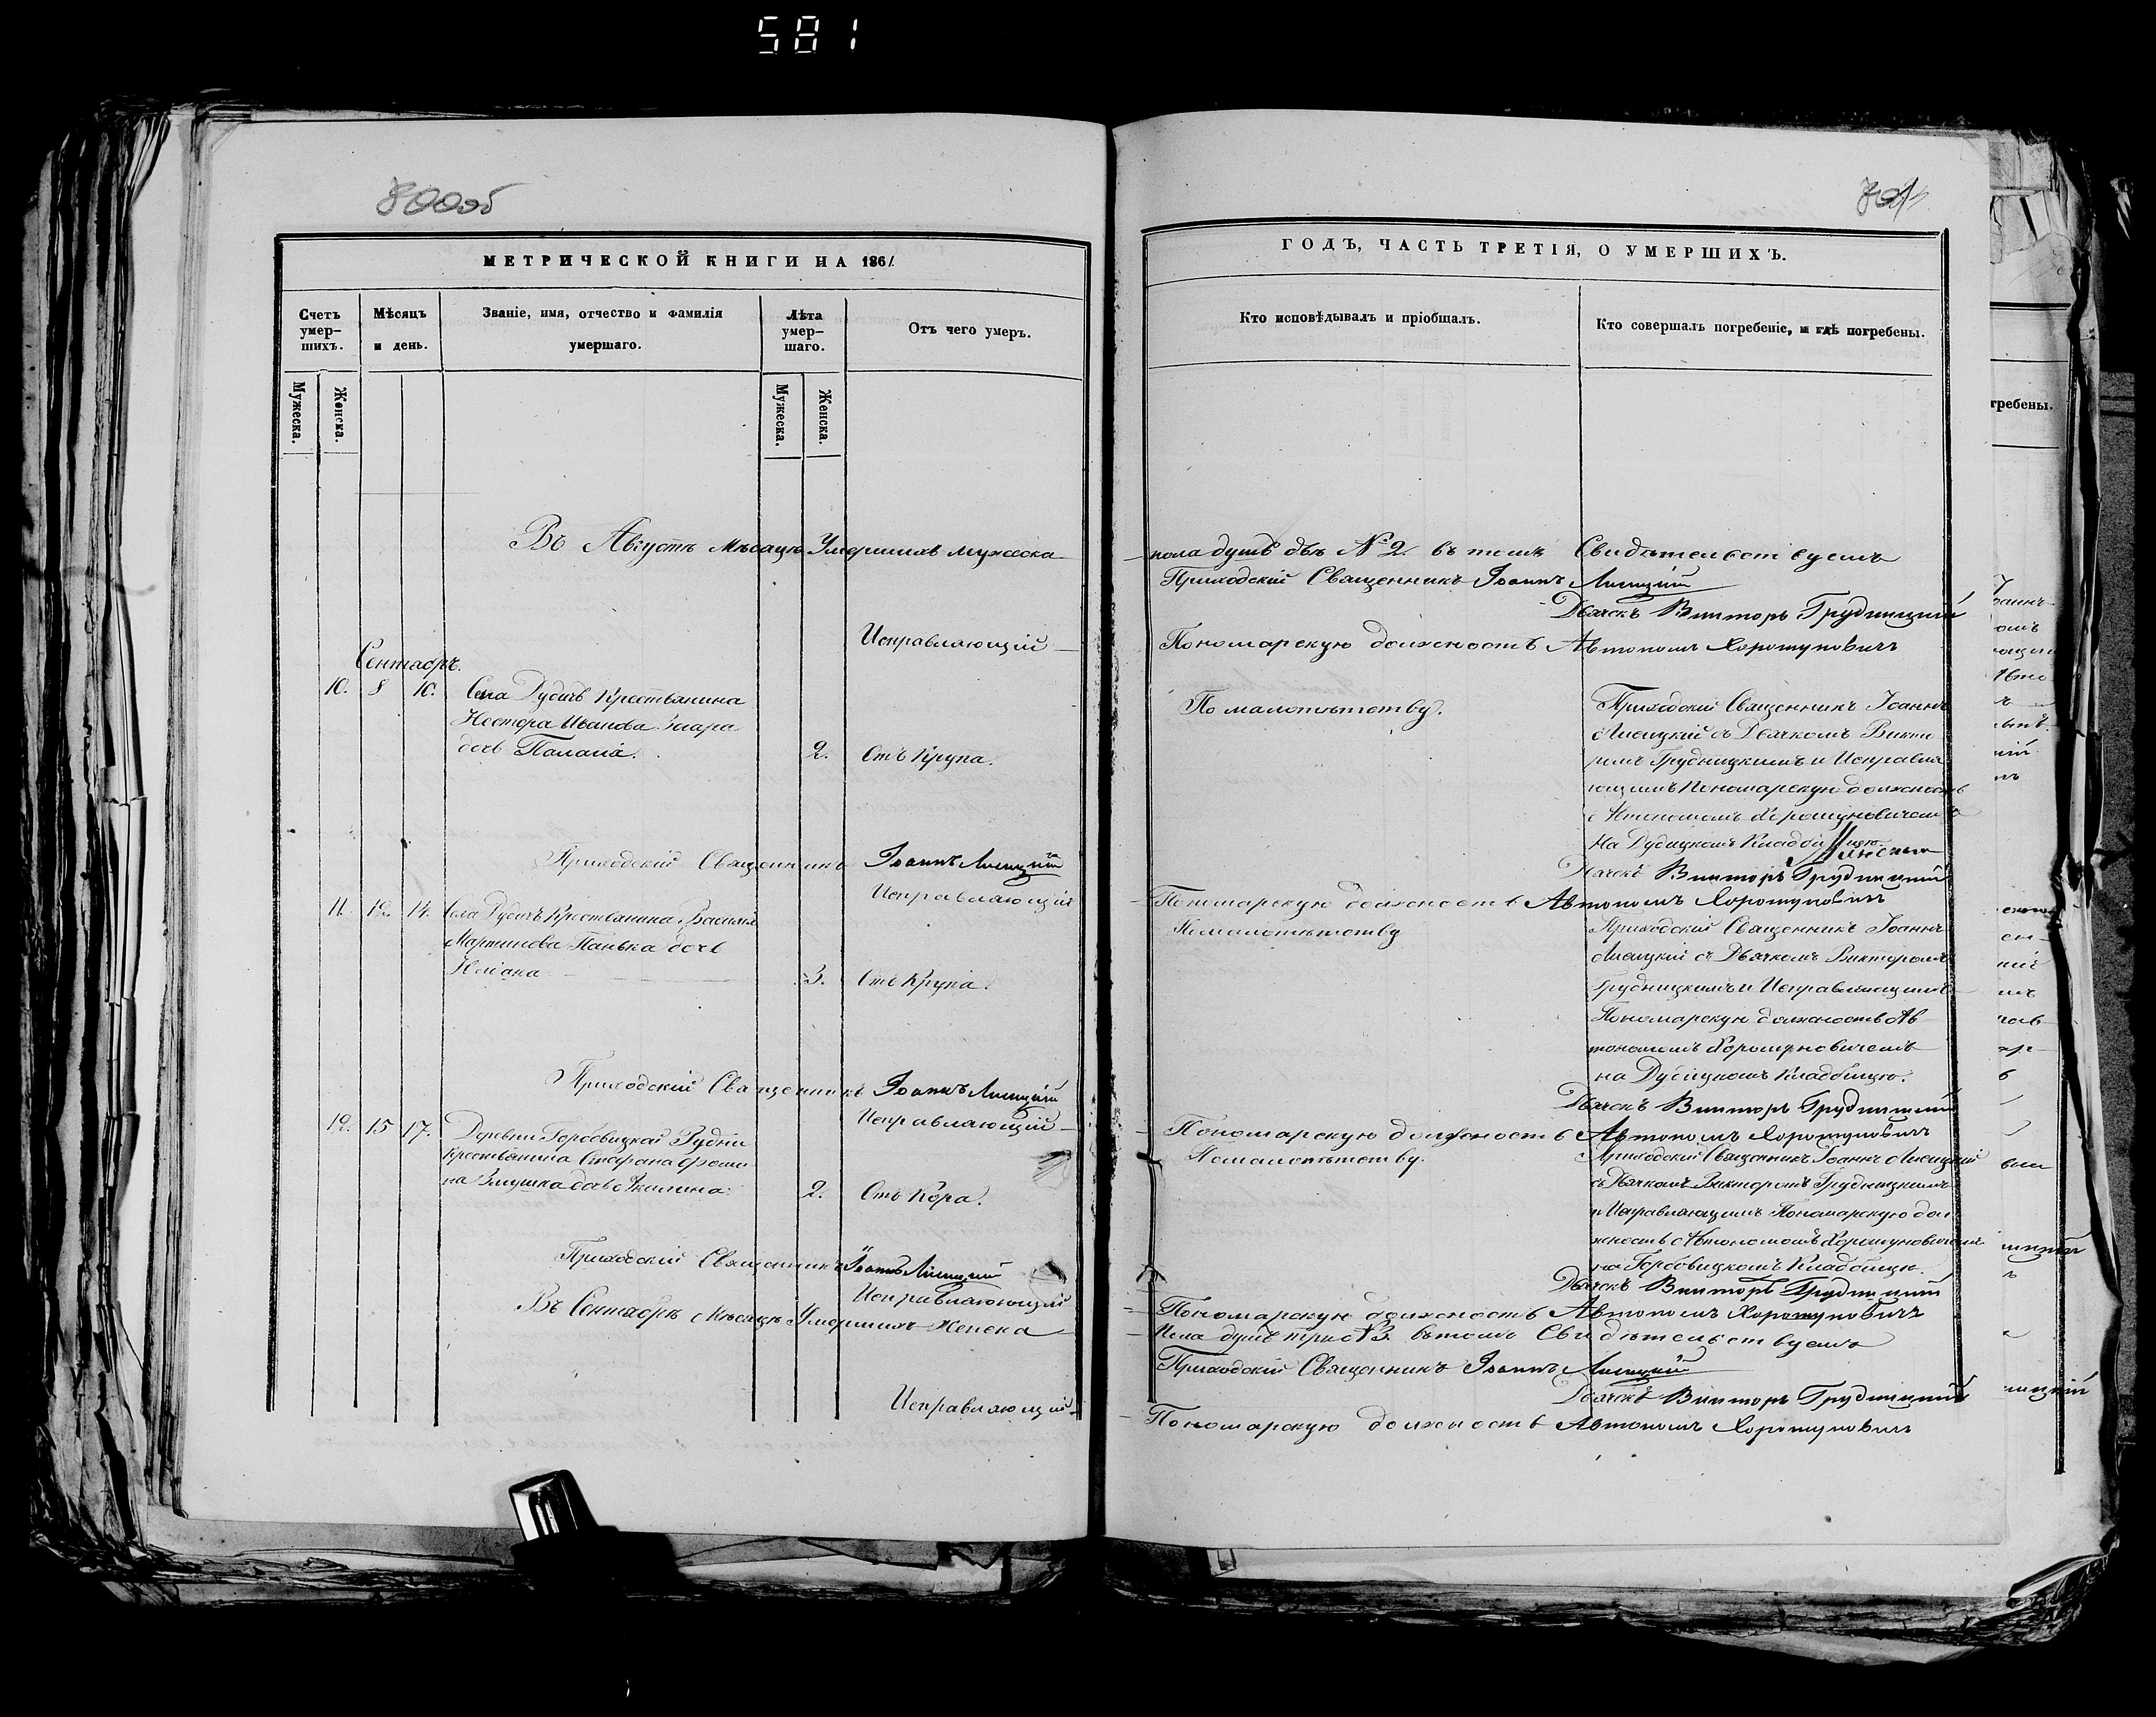 581
800об
801
МЕТРИЧЕСКОЙ КНИГИ НА 1861
Счетъ умер-шихъ.
Мѣсяцъ и день.
Званіе, имя, отчество и фамилія умершаго.
Лѣта умер-шаго.
Отъ чего умеръ.
Мужеска.
Женска.
Мужеска.
Женска.
Въ Августѣ Мѣсяцѣ Умершихъ мужеска
Исправляющій
Сентябрь.
10. 8 10. Села Дубичъ Крестьянина
Нестора Иванова
дочь Палагія. 2. Отъ Крупа.
Приходскій Священникъ Іоаннъ Лисицкій
Исправляющій
11. 12. 14. Села Дубичъ Крестьянина Василія
Мартинова Панька дочь
3. Отъ Крупа.
Приходскій Священникъ Іоаннъ Лисицкій
Исправляющій
12. 15 17. Деревни Горбовицкой Рудни
Крестьянина Стефана Фоми
на дочь Акилина. 2. Отъ Кора.
Приходскій Священникъ Іоаннъ Лисицкій
Исправляющій
Въ Сентябрѣ Мѣсяцѣ Умершихъ Женска
Исправляющій
ГОДЪ, ЧАСТЬ ТРЕТІЯ, О УМЕРШИХЪ.
Кто исповѣдывалъ и пріобщалъ.
Кто совершалъ погребеніе, и гдѣ погребены.
пола душъ двѣ № 2. въ томъ Свидѣтельствуемъ
Приходскій Священникъ Іоаннъ Лисицкій
Дьячекъ Викторъ Грудницкій
Пономарскую должность Автономъ Хоромуновичъ
По малолѣтству. Приходскій Священникъ Іоаннъ
Лисицкій съ Дьячкомъ Викто
ромъ Грудницкимъ и Исправля
ющимъ Пономарскую должность
Автономомъ Хоромуновичемъ
На Дубицкомъ Кладбищѣ.
Дьячекъ Викторъ Грудницкій
Пономарскую должность Автономъ Хоромуновичъ
По малолѣтству Приходскій Священникъ Іоаннъ
Лисицкій съ Дьячкомъ Викторомъ
Грудницкимъ и Исправляющимъ
Пономарскую должность Ав
тономомъ Хоромуновичемъ
на Дубицкомъ Кладбищѣ.
Дьячекъ Викторъ Грудницкій
Пономарскую должность Автономъ Хоромуновичъ
По малолѣтству. Приходскій Священникъ Іоаннъ Лисицкій
съ Дьячкомъ Викторомъ Грудницкимъ
и Исправляющимъ Пономарскую дол
жность Автономомъ Хоромуновичемъ
на Горбовицкомъ Кладбищѣ.
Дьячекъ Викторъ Грудницкій
Пономарскую должность Автономъ Хоромуновичъ
Пола душъ три № 3. въ томъ Свидѣтельствуемъ
Приходскій Священникъ Іоаннъ Лисицкій
Дьячекъ Викторъ Грудницкій
Пономарскую должность Автономъ Хоромуновичъ
гребены.